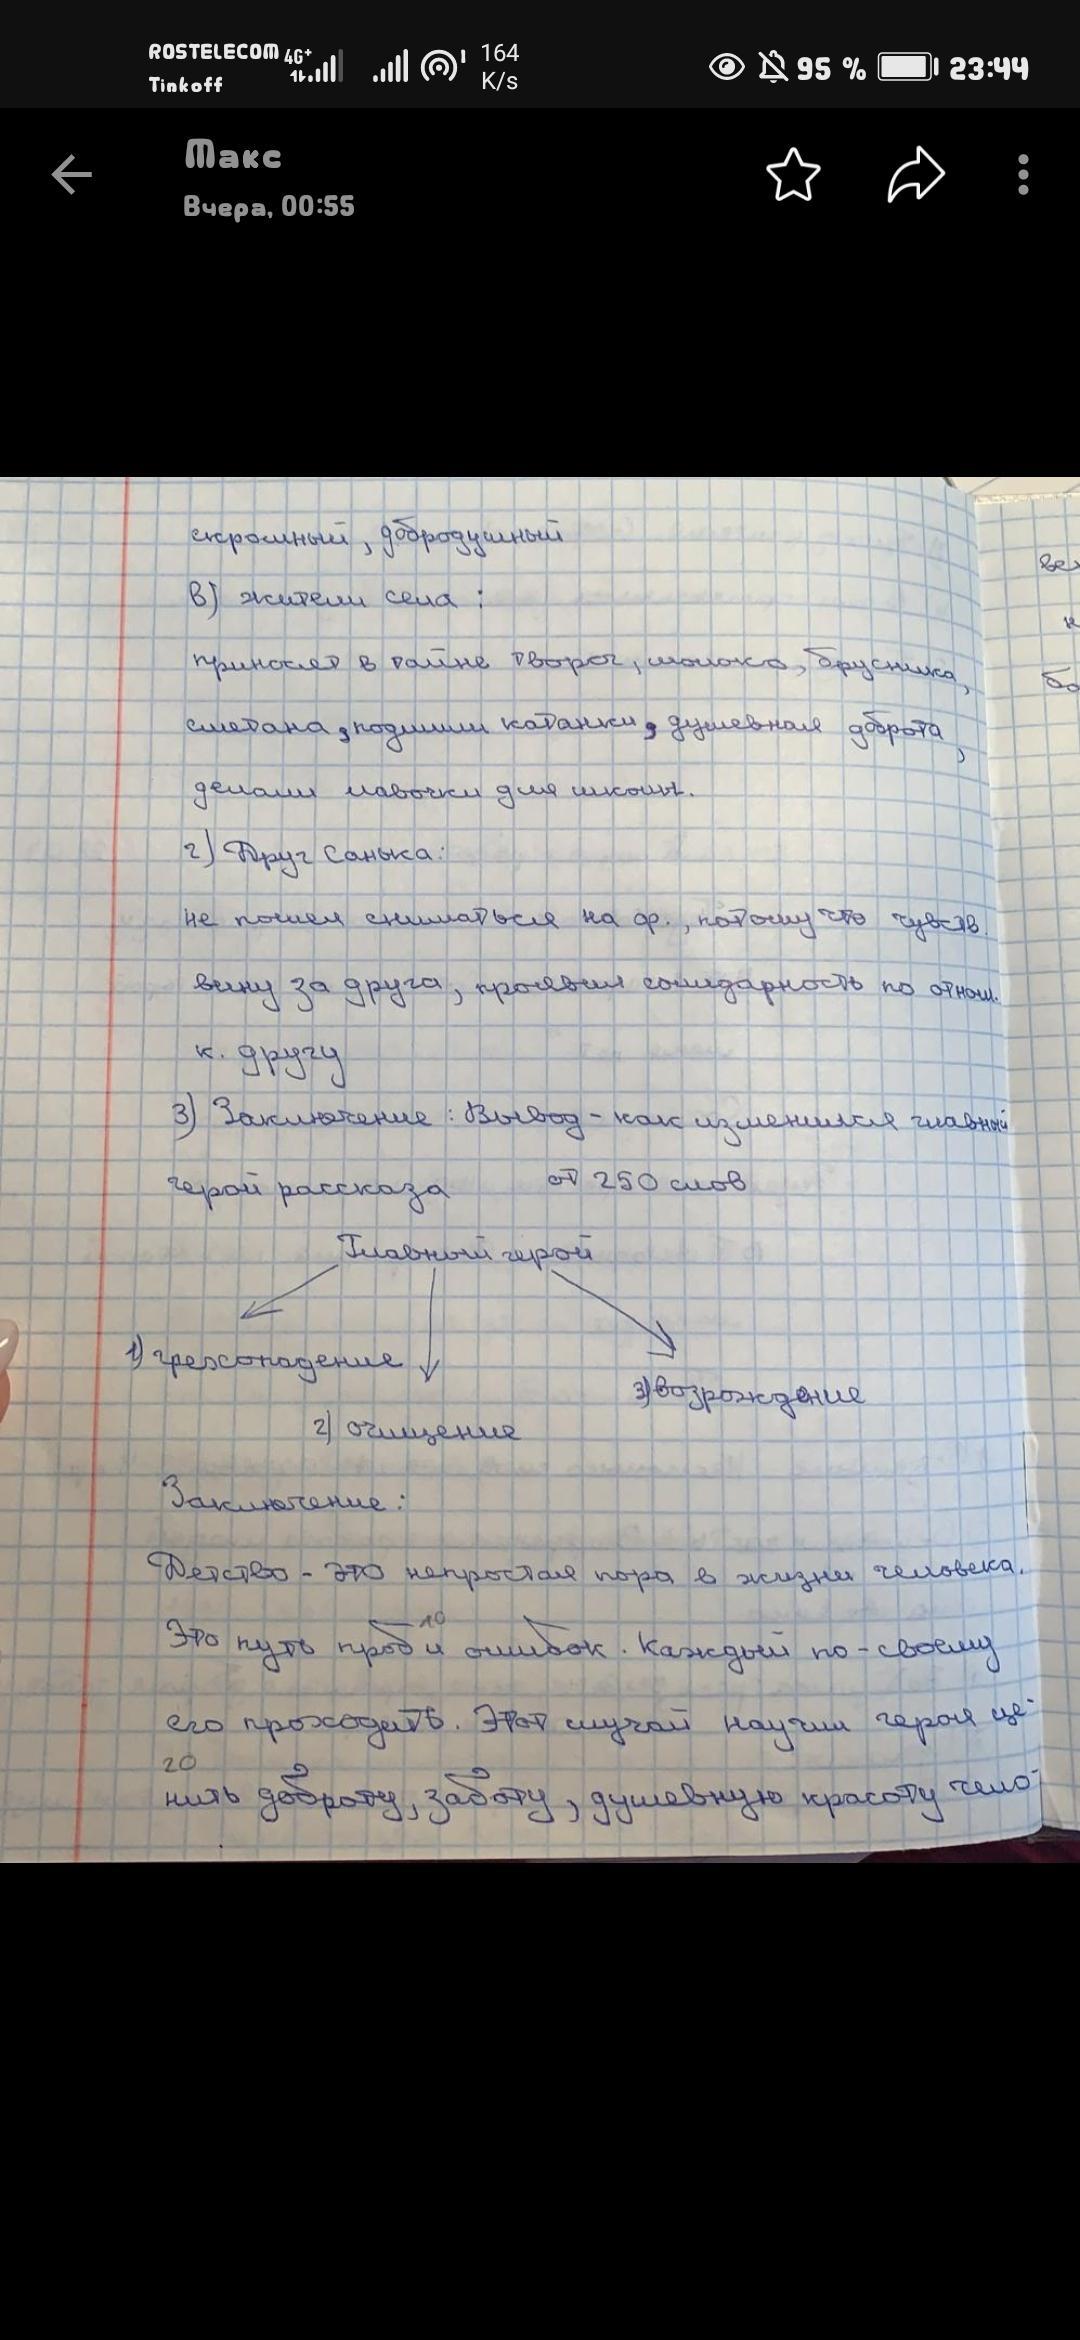 ROSTELECOM 4G+ 164
Tinkoff K/s 95 % 23:44
Макс
Вчера, 00:55
скромный, добродушный
в) жители села :
приносят в тайне творог, молоко, брусника,
сметана, подшили катанки, душевная доброта,
делали лавочки для школы.
г) Друг Санька:
не пошел сниматься на ф., потому что чувств.
вину за друга, проявил солидарность по отнош.
к. другу
3) Заключение : Вывод - как изменился главный
герой рассказа от 250 слов
Главный герой
1) грехопадение
3) возрождение
2) очищение
Заключение :
Детство - это непростая пора в жизни человека.
10
Это путь проб и ошибок. Каждый по-своему
его проходить. Этот случай научил героя це-
20
нить доброту, заботу, душевную красоту чело-